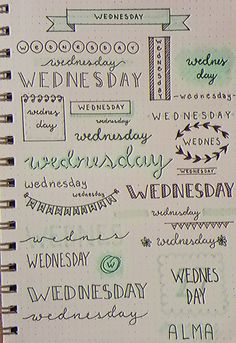 WEDNESDAY
WEDNESDAY
wednesday
WEDNESDAY
WEDNESDAY
wednes
day
wednesday
wednes
day
WEDNESDAY
wednesday
wednesday
WEDNESDAY
WEDNES
DAY
wednesday
WEDNESDAY
wednesday
wednesday
WEDNESDAY
WEDNESDAY
wednesday
wednes
day
wednesday
WEDNESDAY
W
WEDNES
DAY
WEDNESDAY
wednesday
ALMA